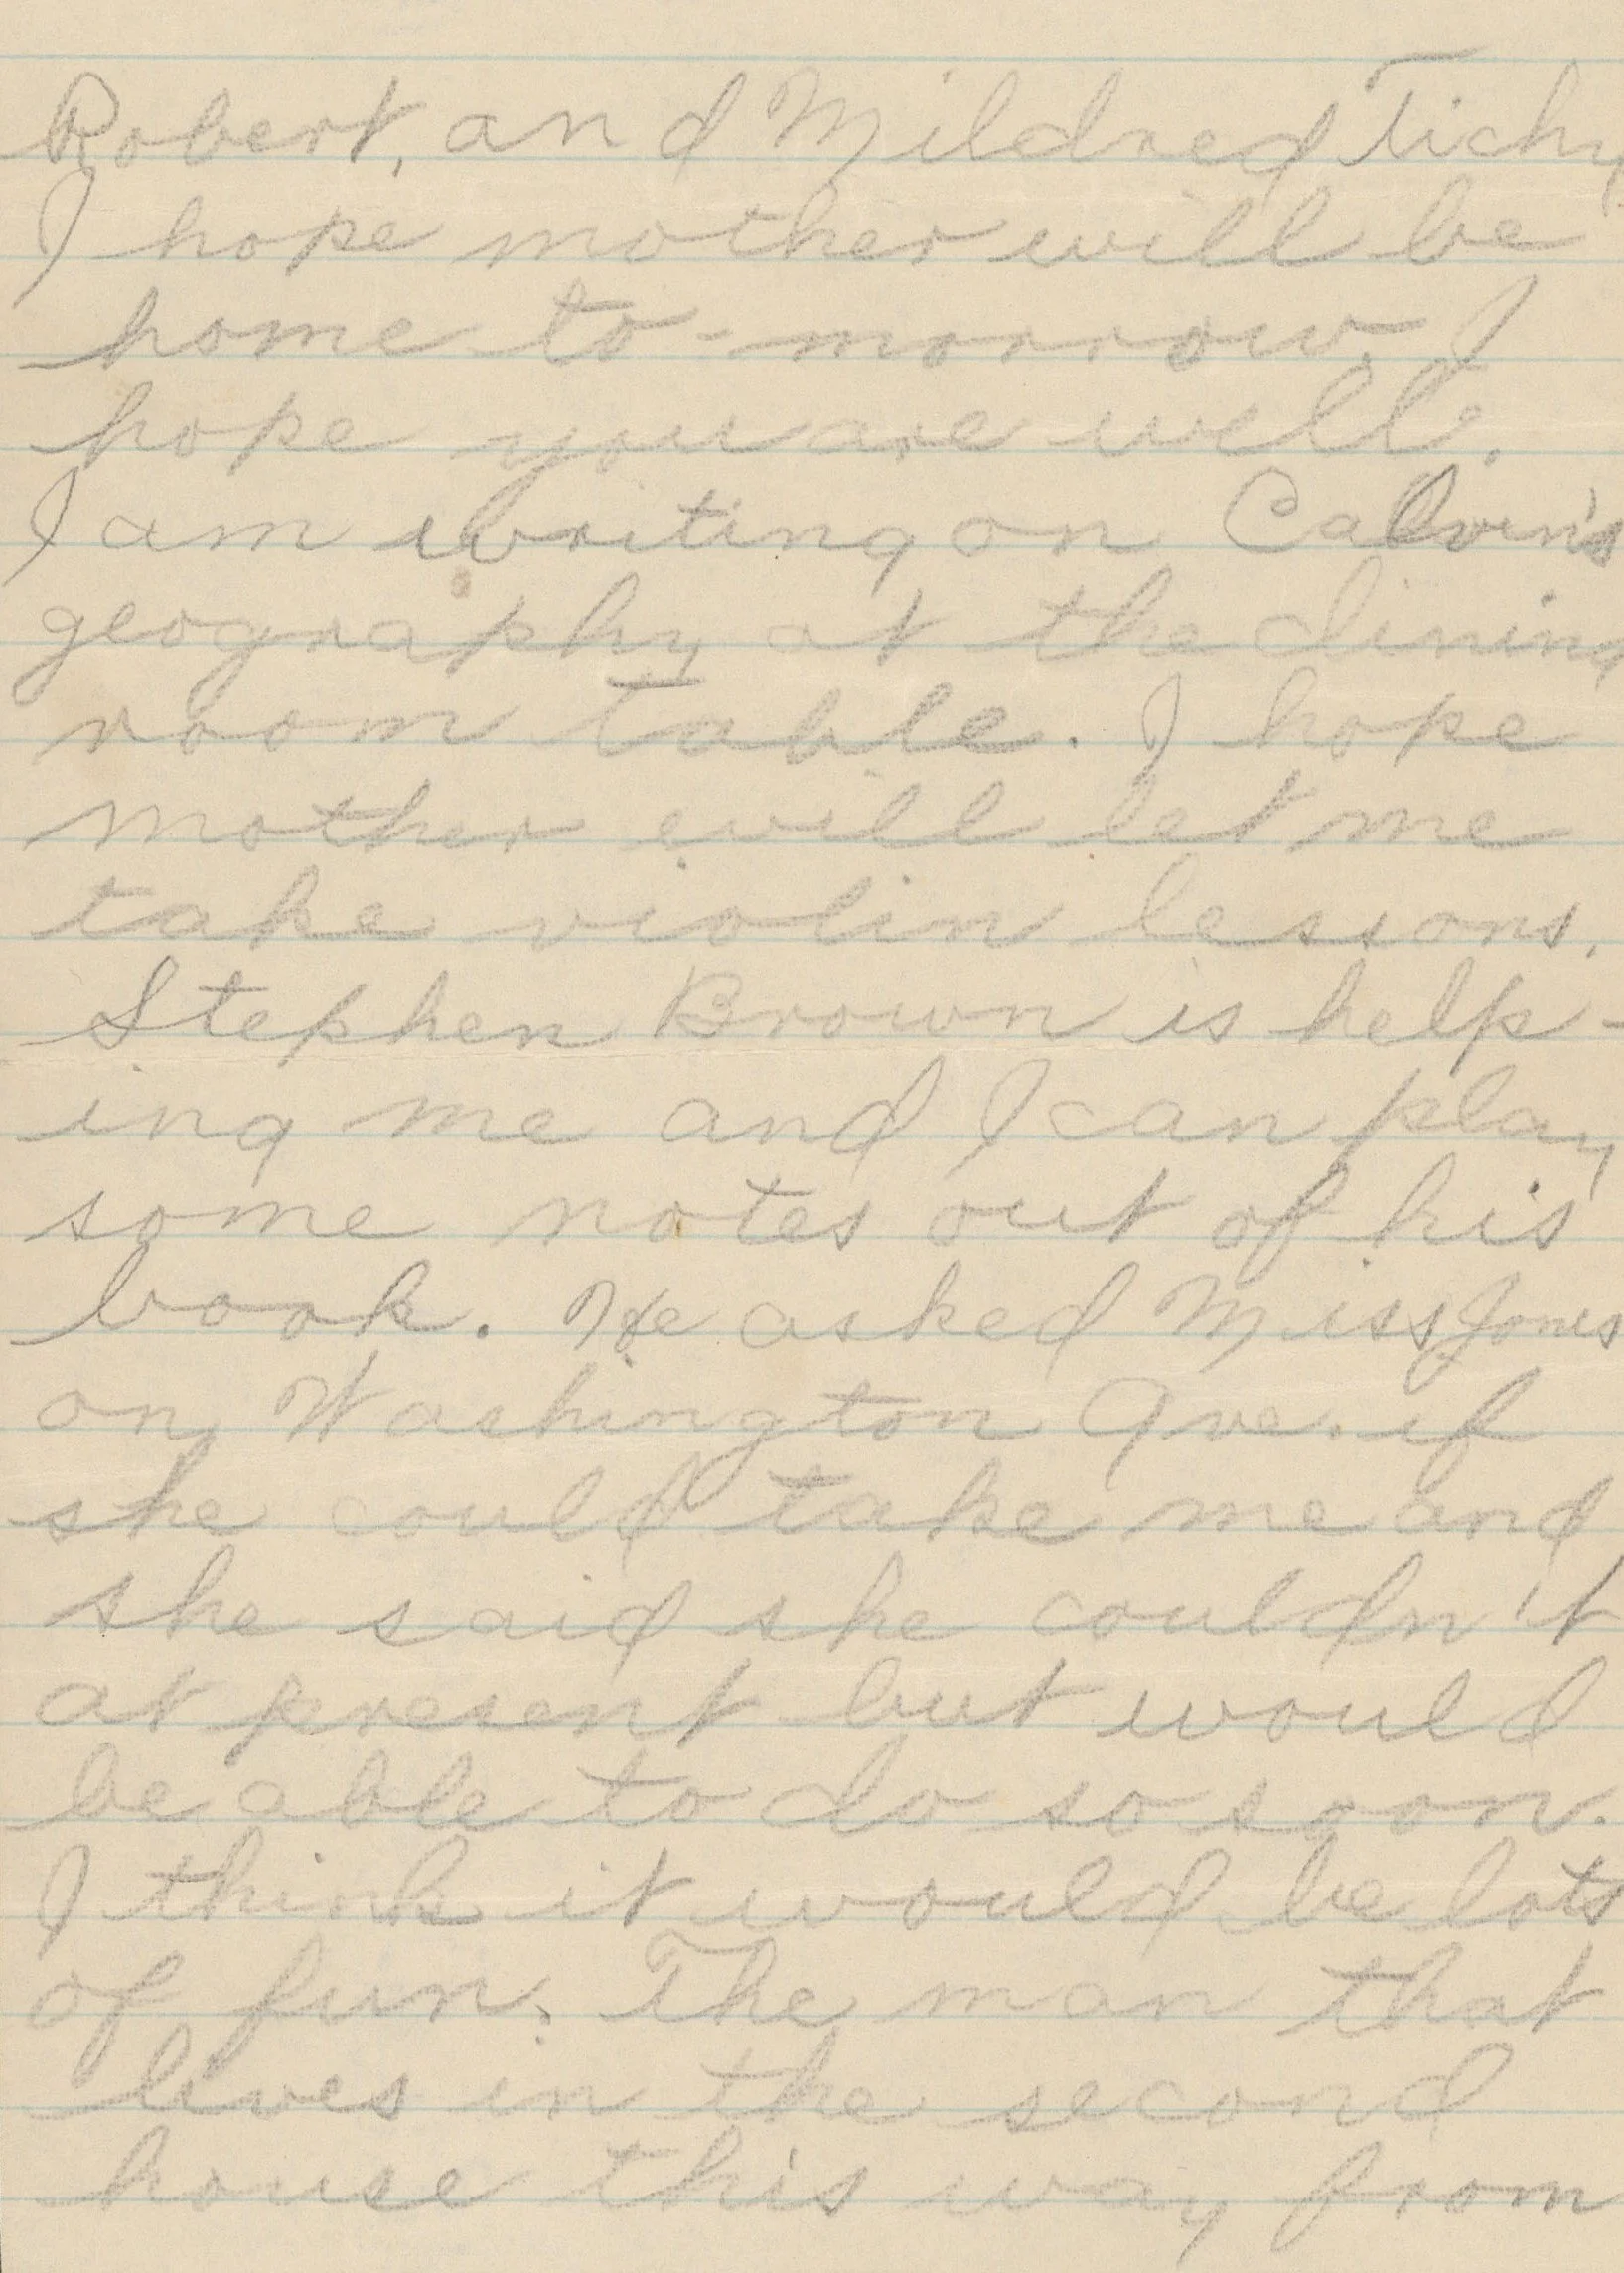 Robert, and Mildred Tichy
I hope mother will be
home to-morrow. I
hope you are well.
I am writing on Calvin's
geography at the dining
room table. I hope
mother will let me
take violin lessons.
Stephen Brown is help-
ing me and I can play
some notes out of his
book. He asked Miss Jones
on Washington Ave. if
she could take me and
she said she couldn't
at present but would
be able to do so soon.
I think it would be lots
of fun. The man that
lives in the second
house this way from